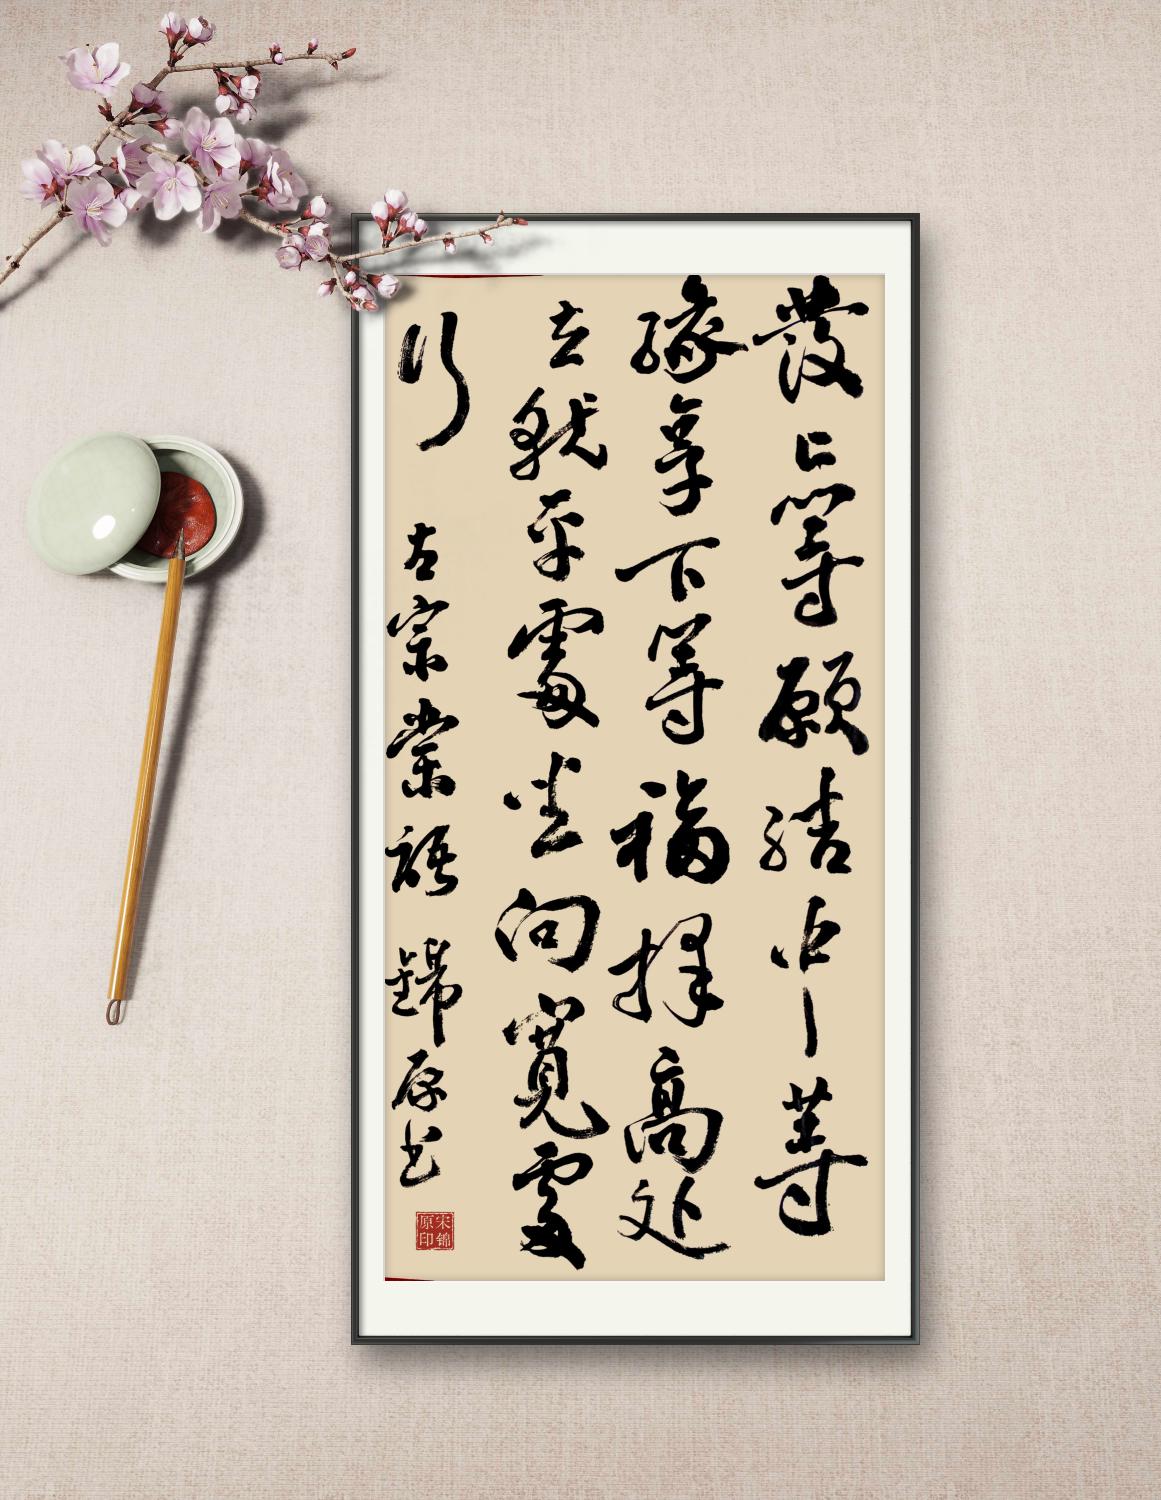 發上等願結中等
緣享下等福擇高处
立就平處坐向寬處
行 左宗棠語 錦原书
宋锦
原印